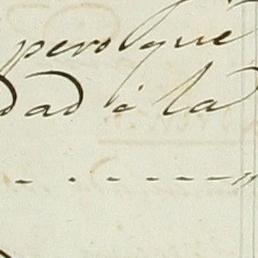 pero que
dad á la
- - - - - - - "